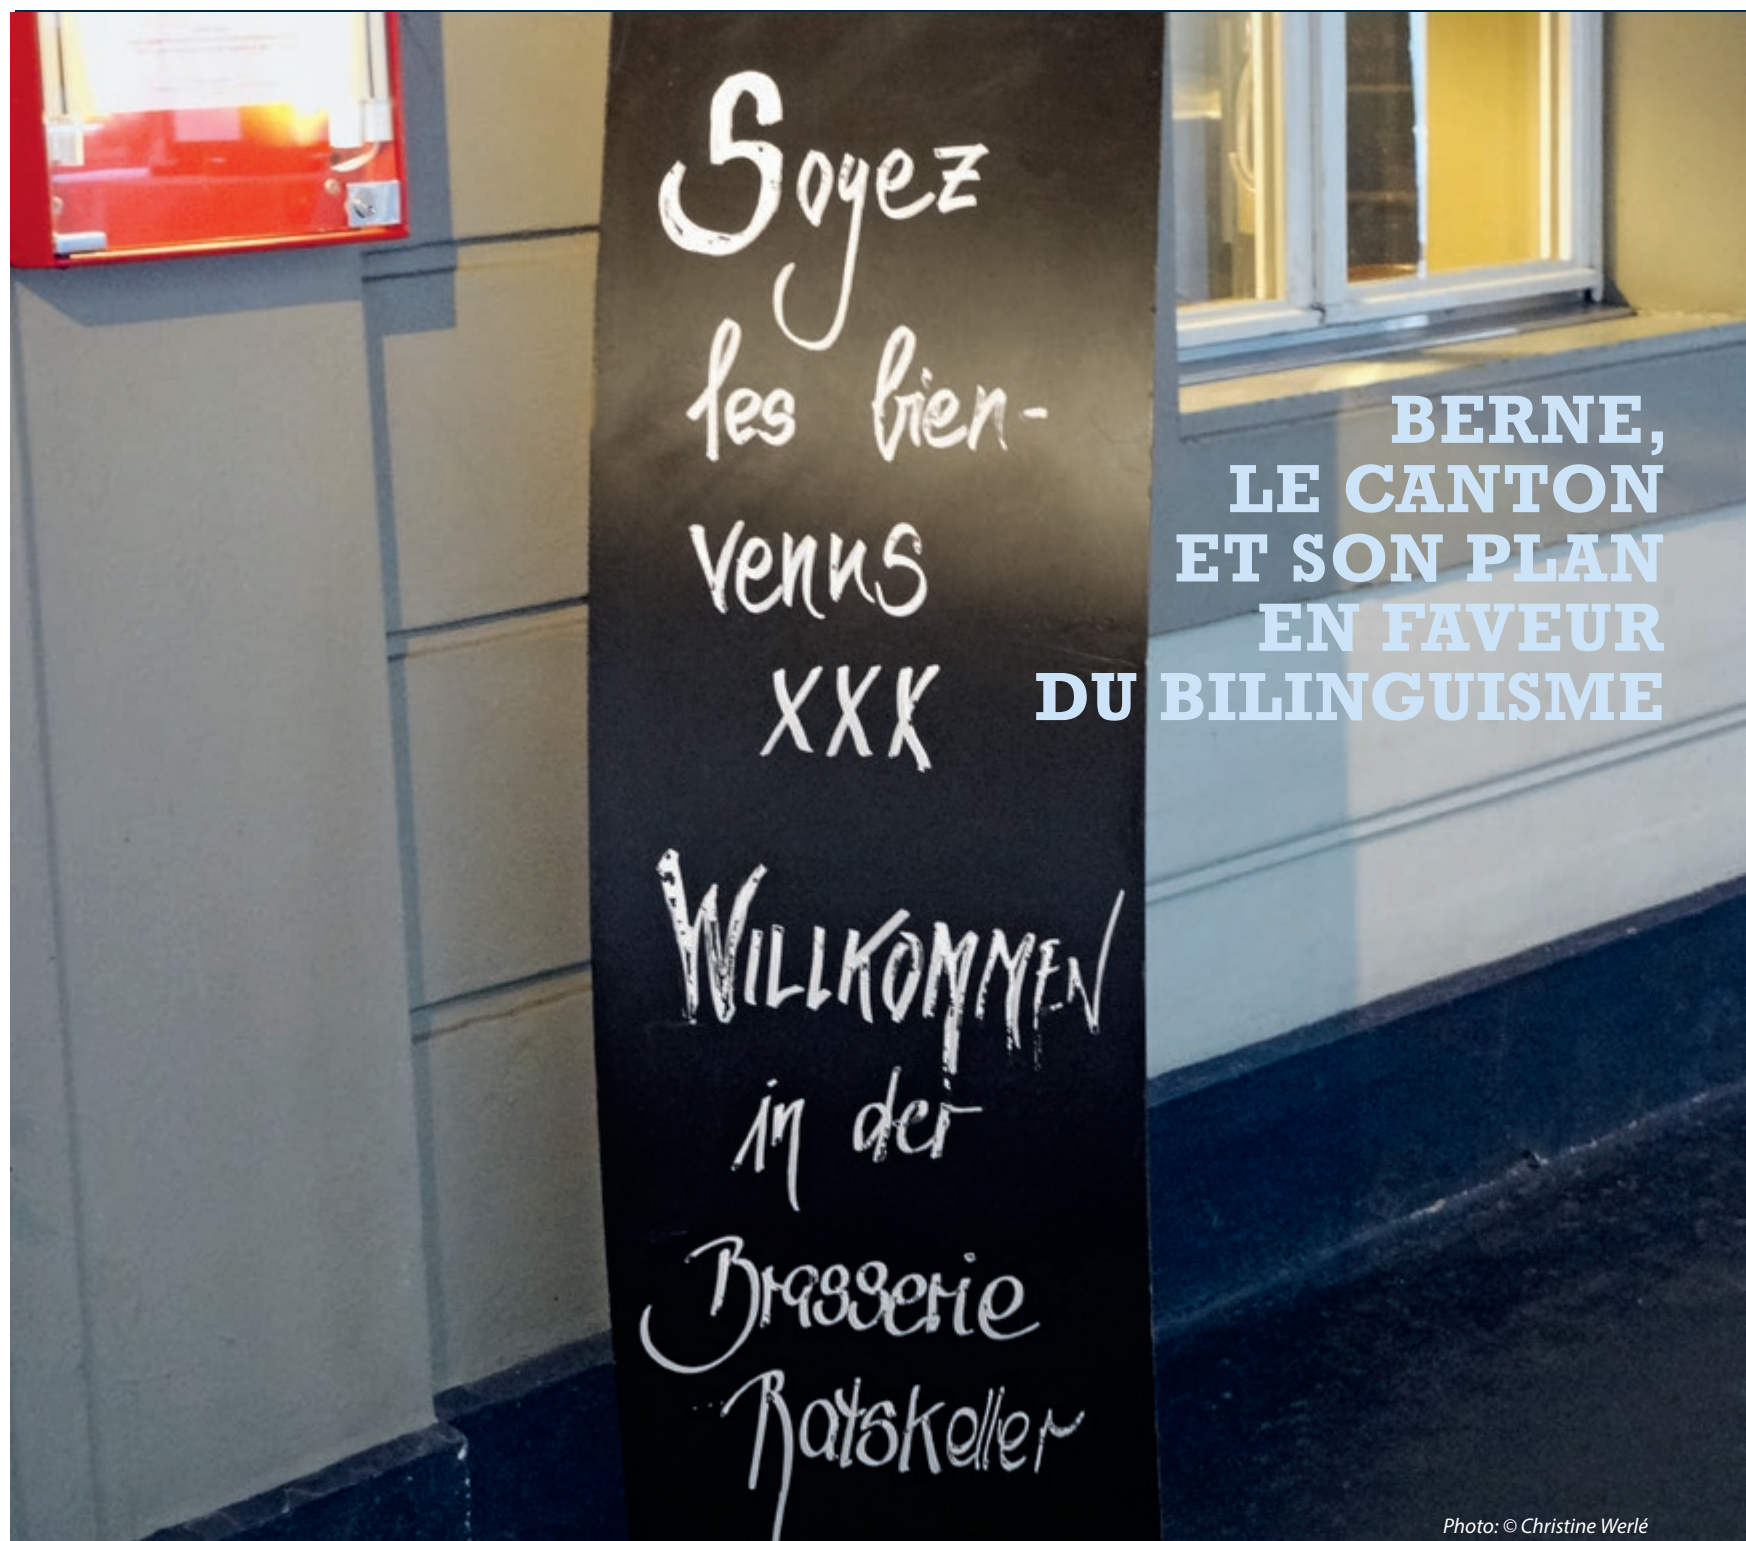 Soyez
les bien-
venus
XXX
WILLKOMMEN
in der
Brasserie
Ratskeller
BERNE,
LE CANTON
ET SON PLAN
EN FAVEUR
DU BILINGUISME
Photo: © Christine Werlé